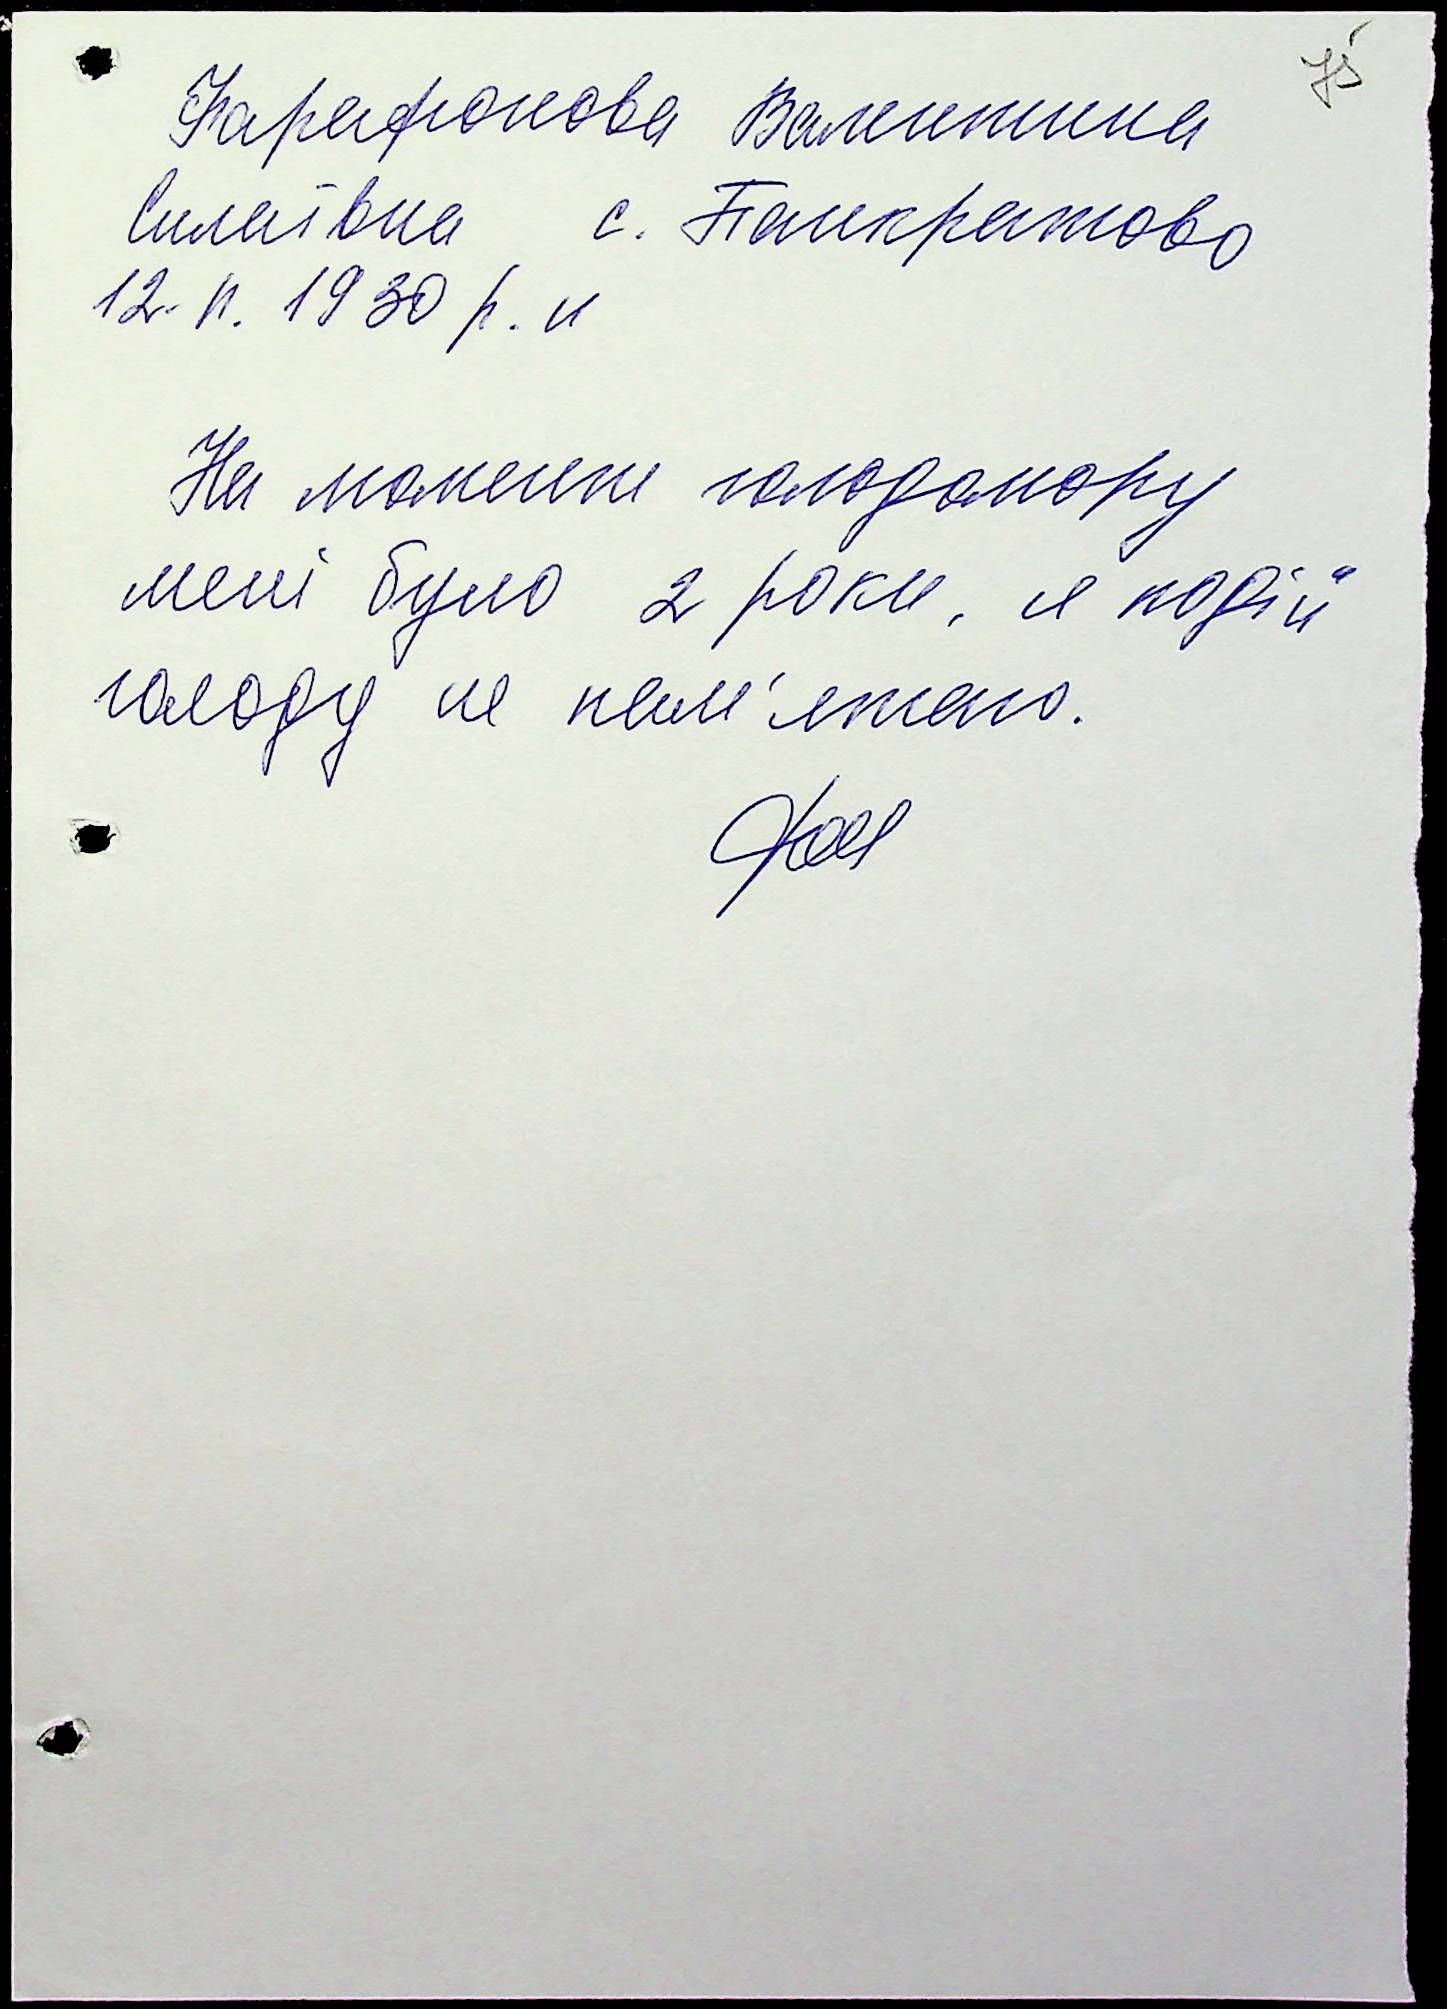 75
Фарафонова Валентина
Силаївна с. Панкратово
12. п. 1930 р. н
На момент голодомору
мені було 2 роки, я подій
голоду не пам'ятаю.